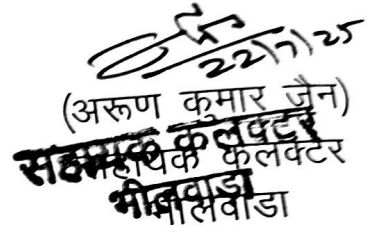 22/7/25
(अरूण कुमार जैन)
सहायक कलक्टर
सहायक कलेक्टर
भीलवाडा
भीलवाडा